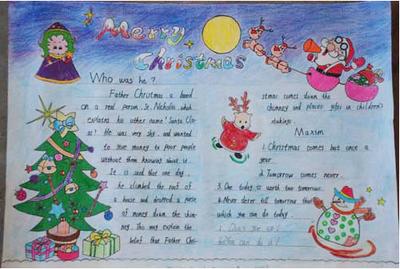 Merry
Christmas
Who was he?
Father Christmas is based
on a real person, St. Nicholas, which
explains his other name 'Santa Cla-
us'. He was very shy and wanted
to give money to poor people
without them knowing about it.
It is said that one day,
he climbed the roof of
a house and dropped a purse
of money down the chim-
ney. This may explain the
belief that Father Chri-
stmas comes down the
chimney and places gifts in children's
stockings.
Maxim
1. Christmas comes but once a
year.
2. Tomorrow comes never.
3. One today is worth two tomorrows.
4. Never defer till tomorrow that
which you can do today.